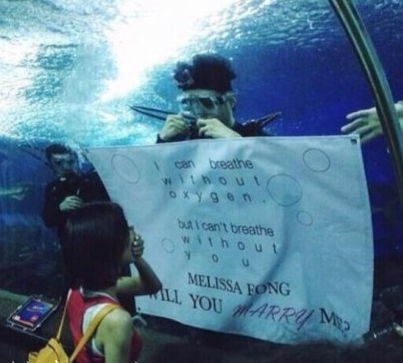 I can breathe
without
oxygen.
but I can't breathe
without
you
MELISSA FONG
WILL YOU MARRY ME?